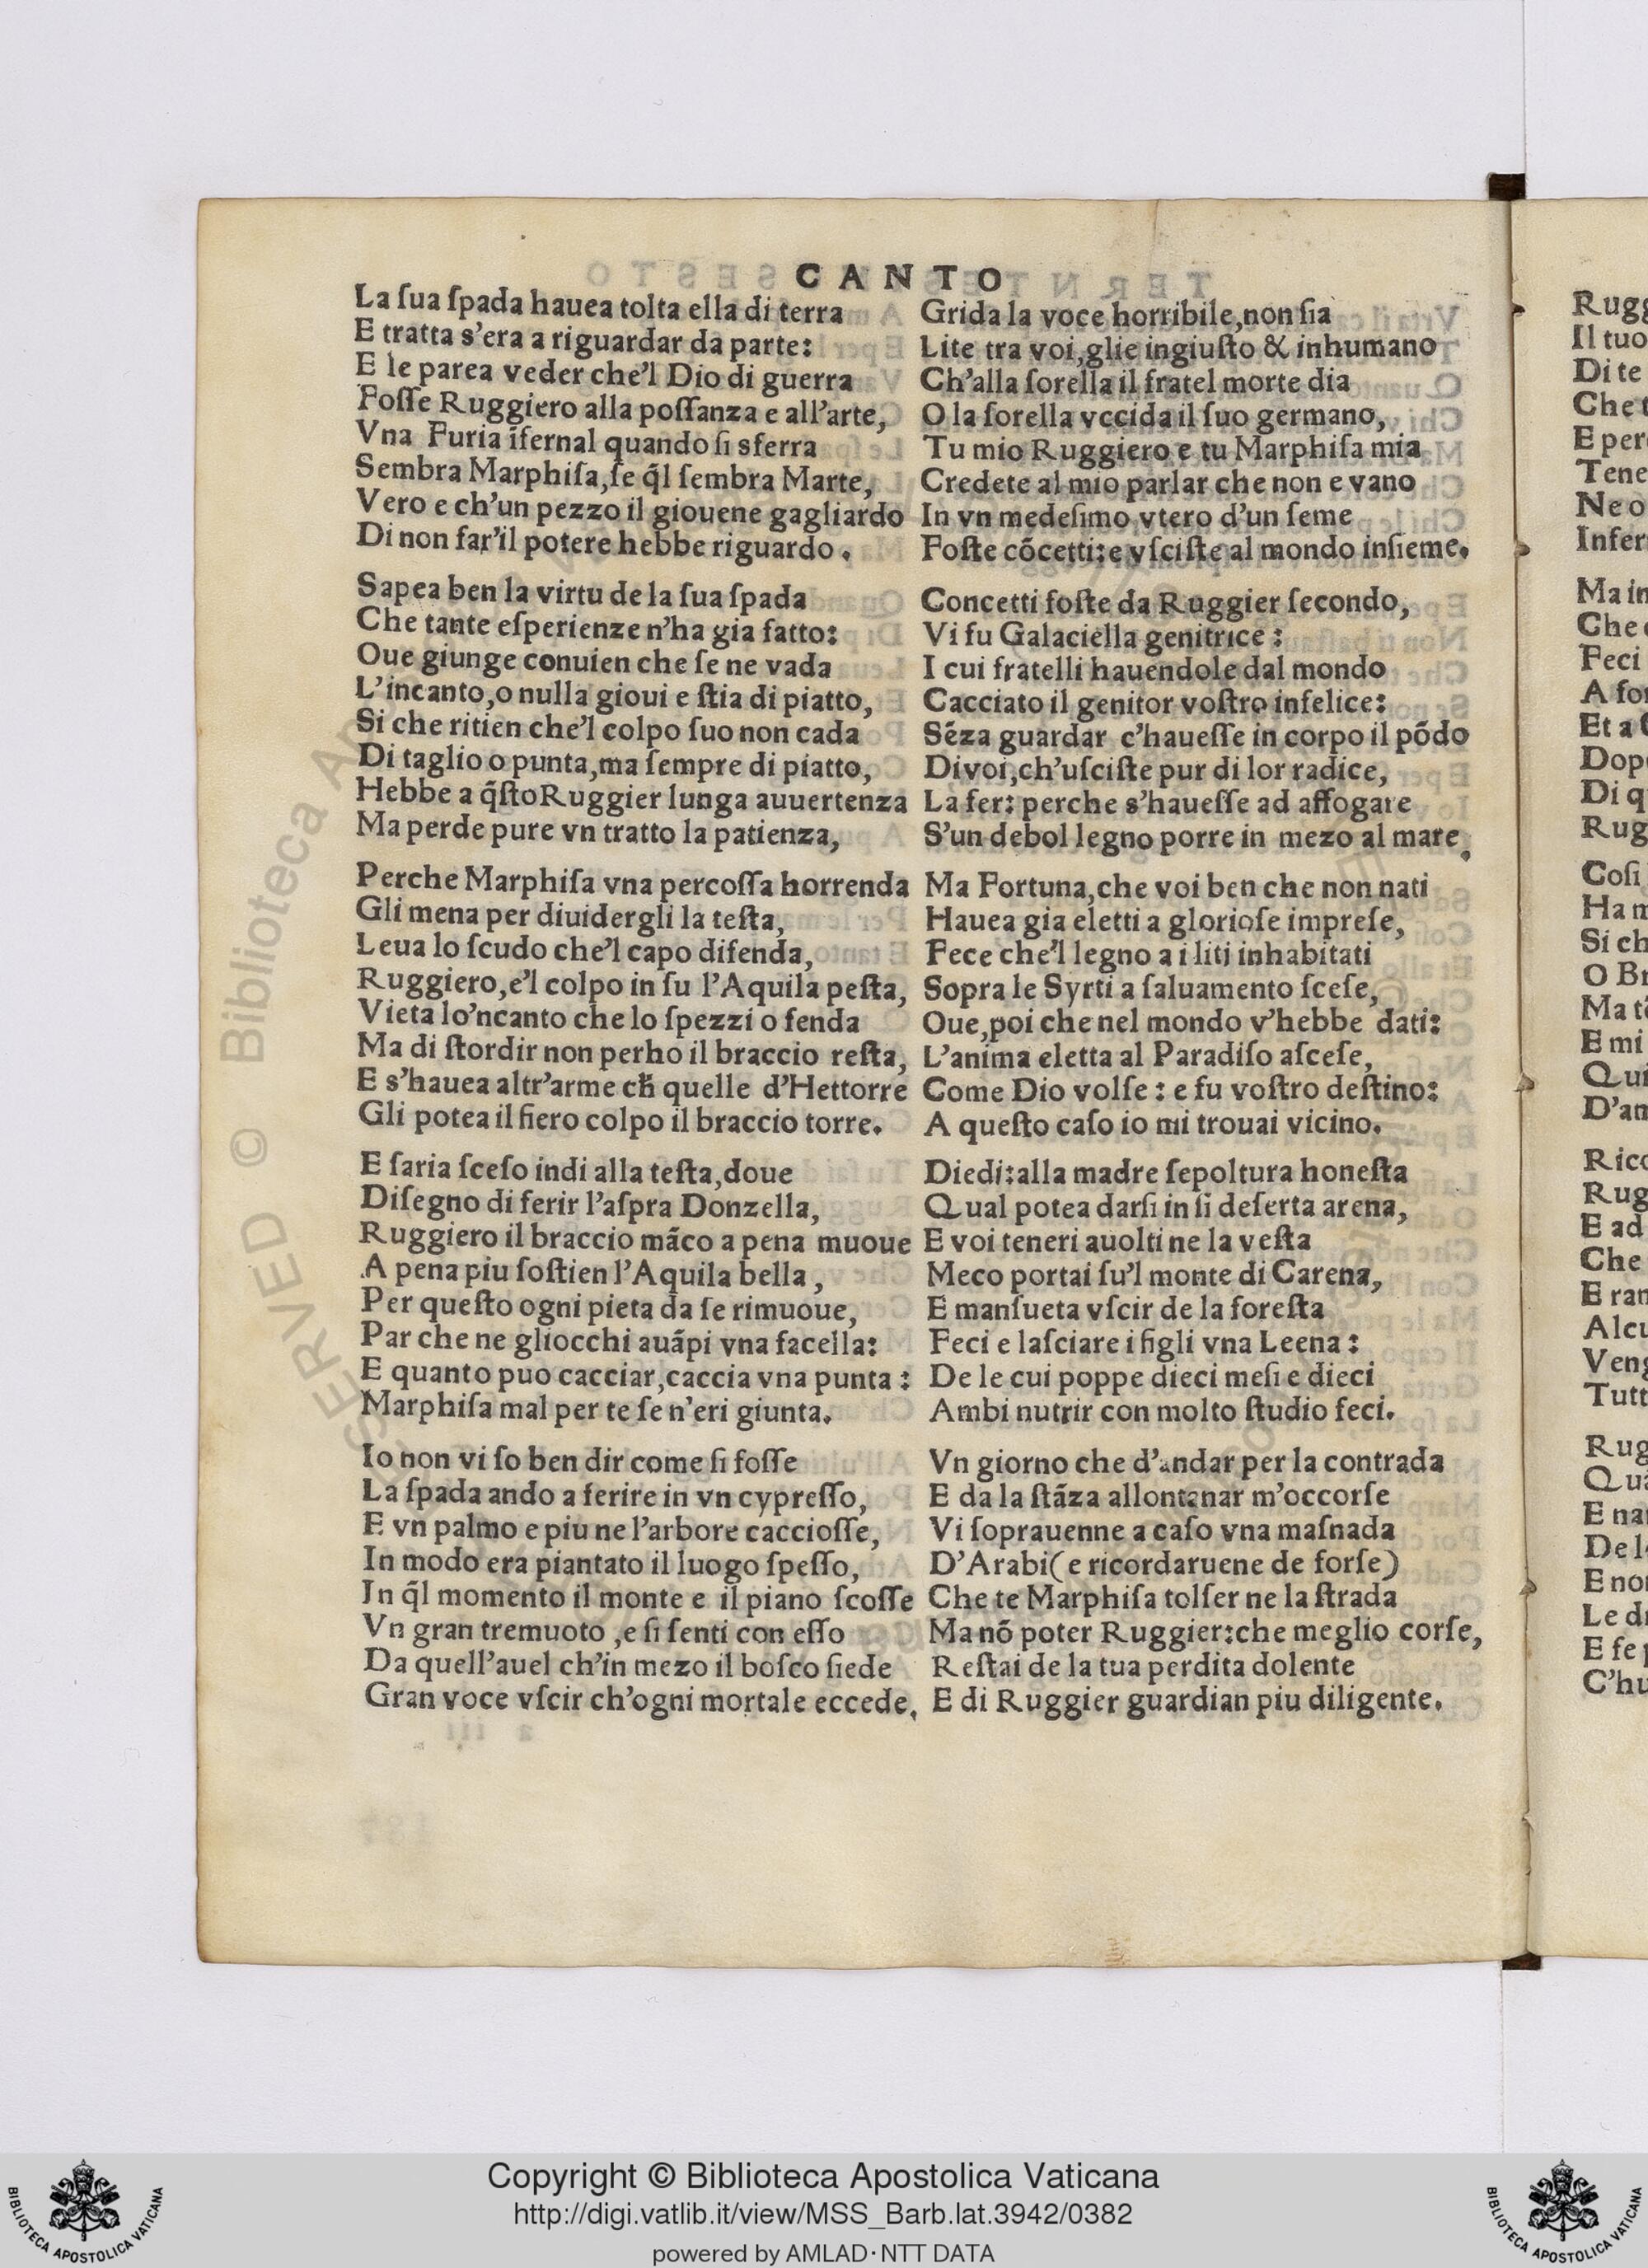 CANTO
La ſua ſpada hauea tolta ella di terra
E tratta s'era a riguardar da parte:
E le parea veder che'l Dio di guerra
Foſſe Ruggiero alla poſſanza e all'arte,
Vna Furia īfernal quando ſi sferra
Sembra Marphiſa, ſe q̃l ſembra Marte,
Vero e ch'un pezzo il giouene gagliardo
Di non far'il potere hebbe riguardo.
Sapea ben la virtu de la ſua ſpada
Che tante eſperienze n'ha gia fatto:
Oue giunge conuien che ſe ne vada
L'incanto, o nulla gioui e ſtia di piatto,
Si che ritien che'l colpo ſuo non cada
Di taglio o punta, ma ſempre di piatto,
Hebbe a q̃ſto Ruggier lunga auuertenza
Ma perde pure vn tratto la patienza,
Perche Marphiſa vna percoſſa horrenda
Gli mena per diuidergli la teſta,
Leua lo ſcudo che'l capo difenda,
Ruggiero, e'l colpo in ſu l'Aquila peſta,
Vieta lo'ncanto che lo ſpezzi o fenda
Ma di ſtordir non perho il braccio reſta,
E s'hauea altr'arme ch̃ quelle d'Hettorre
Gli potea il fiero colpo il braccio torre.
E ſaria ſceſo indi alla teſta, doue
Diſegno di ferir l'aſpra Donzella,
Ruggiero il braccio māco a pena muoue
A pena piu ſoſtien l'Aquila bella,
Per queſto ogni pieta da ſe rimuoue,
Par che ne gliocchi auāpi vna facella:
E quanto puo cacciar, caccia vna punta:
Marphiſa mal per te ſe n'eri giunta.
Io non vi ſo ben dir come ſi foſſe
La ſpada ando a ferire in vn cypreſſo,
E vn palmo e piu ne l'arbore caccioſſe,
In modo era piantato il luogo ſpeſſo,
In q̃l momento il monte e il piano ſcoſſe
Vn gran tremuoto, e ſi ſenti con eſſo
Da quell'auel ch'in mezo il boſco ſiede
Gran voce vſcir ch'ogni mortale eccede,
Grida la voce horribile, non ſia
Lite tra voi, glie ingiuſto & inhumano
Ch'alla ſorella il fratel morte dia
O la ſorella vccida il ſuo germano,
Tu mio Ruggiero e tu Marphiſa mia
Credete al mio parlar che non e vano
In vn medeſimo vtero d'un ſeme
Foſte cōcetti: e vſciſte al mondo inſieme.
Concetti foſte da Ruggier ſecondo,
Vi fu Galaciella genitrice:
I cui fratelli hauendole dal mondo
Cacciato il genitor voſtro infelice:
Sēza guardar c'haueſſe in corpo il pōdo
Di voi, ch'uſciſte pur di lor radice,
La fer: perche s'haueſſe ad affogare
S'un debol legno porre in mezo al mare,
Ma Fortuna, che voi ben che non nati
Hauea gia eletti a glorioſe impreſe,
Fece che'l legno a i liti inhabitati
Sopra le Syrti a ſaluamento ſceſe,
Oue, poi che nel mondo v'hebbe dati:
L'anima eletta al Paradiſo aſceſe,
Come Dio volſe: e fu voſtro deſtino:
A queſto caſo io mi trouai vicino.
Diedi: alla madre ſepoltura honeſta
Qual potea darſi in ſi deſerta arena,
E voi teneri auolti ne la veſta
Meco portai ſu'l monte di Carena,
E manſueta vſcir de la foreſta
Feci e laſciare i figli vna Leena:
De le cui poppe dieci meſi e dieci
Ambi nutrir con molto ſtudio feci.
Vn giorno che d'andar per la contrada
E da la ſtāza allontanar m'occorſe
Vi ſoprauenne a caſo vna maſnada
D'Arabi (e ricordaruene de forſe)
Che te Marphiſa tolſer ne la ſtrada
Ma nō poter Ruggier: che meglio corſe,
Reſtai de la tua perdita dolente
E di Ruggier guardian piu diligente.
Copyright © Biblioteca Apostolica Vaticana
http://digi.vatlib.it/view/MSS_Barb.lat.3942/0382
powered by AMLAD·NTT DATA